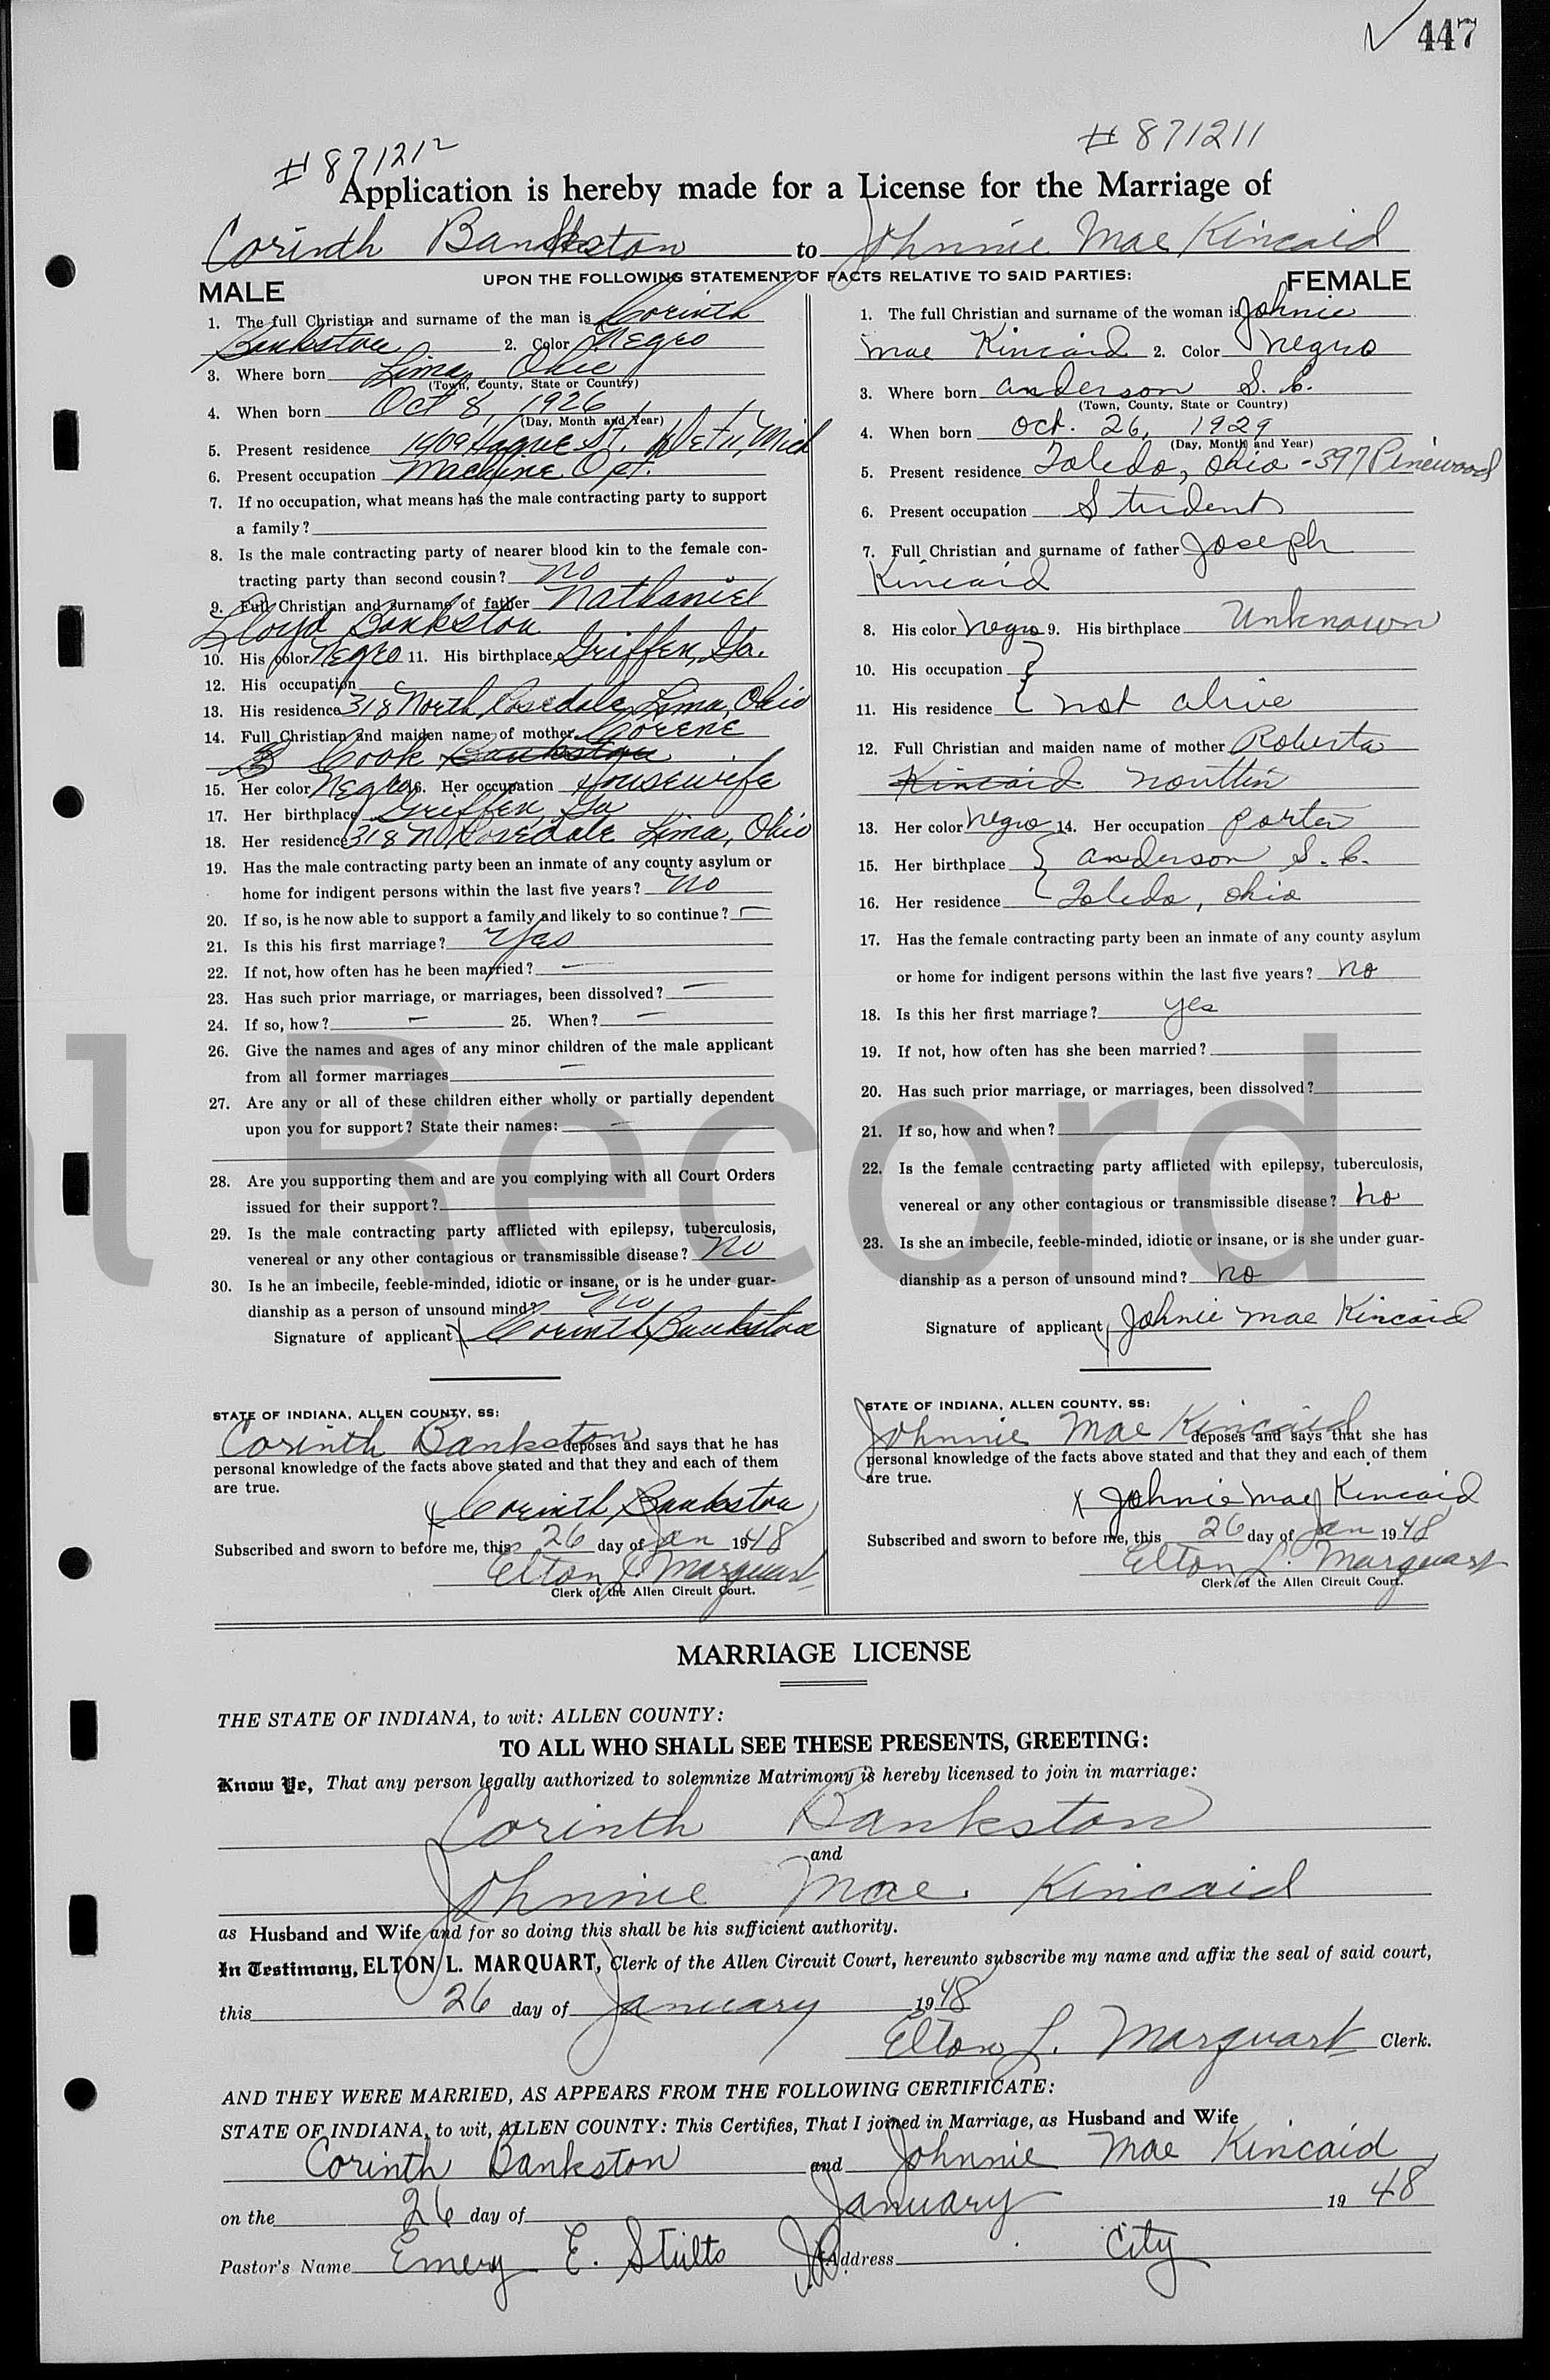 447
# 871212
# 871211
Application is hereby made for a License for the Marriage of
Corinth Bankston to Johnnie Mae Kincaid
UPON THE FOLLOWING STATEMENT OF FACTS RELATIVE TO SAID PARTIES:
MALE
1. The full Christian and surname of the man is Corinth
Bankston 2. Color Negro
3. Where born Lima, Ohio
(Town, County, State or Country)
4. When born Oct 8, 1926
(Day, Month and Year)
5. Present residence 1409 Hague St. Det., Mich
6. Present occupation Machine Opt.
7. If no occupation, what means has the male contracting party to support
a family?
8. Is the male contracting party of nearer blood kin to the female con-
tracting party than second cousin? no
9. Full Christian and surname of father Nathaniel
Lloyd Bankston
10. His color Negro 11. His birthplace Griffen, Ga.
12. His occupation
13. His residence 318 North Rosedale Lima, Ohio
14. Full Christian and maiden name of mother Corene
B Cook Bankston
15. Her color Negro 16. Her occupation Housewife
17. Her birthplace Griffen, Ga
18. Her residence 318 No Rosedale Lima, Ohio
19. Has the male contracting party been an inmate of any county asylum or
home for indigent persons within the last five years? No
20. If so, is he now able to support a family and likely to so continue? —
21. Is this his first marriage? Yes
22. If not, how often has he been married? —
23. Has such prior marriage, or marriages, been dissolved? —
24. If so, how? — 25. When? —
26. Give the names and ages of any minor children of the male applicant
from all former marriages —
27. Are any or all of these children either wholly or partially dependent
upon you for support? State their names: —
28. Are you supporting them and are you complying with all Court Orders
issued for their support?
29. Is the male contracting party afflicted with epilepsy, tuberculosis,
venereal or any other contagious or transmissible disease? No
30. Is he an imbecile, feeble-minded, idiotic or insane, or is he under guar-
dianship as a person of unsound mind? No
Signature of applicant x Corinth Bankston
STATE OF INDIANA, ALLEN COUNTY, SS:
Corinth Bankston deposes and says that he has
personal knowledge of the facts above stated and that they and each of them
are true.
x Corinth Bankston
Subscribed and sworn to before me, this 26 day of Jan 1948
Elton L. Marquart
Clerk of the Allen Circuit Court.
FEMALE
1. The full Christian and surname of the woman is Johnie
Mae Kincaid 2. Color Negro
3. Where born Anderson S. C.
(Town, County, State or Country)
4. When born Oct. 26, 1929
(Day, Month and Year)
5. Present residence Toledo, Ohio - 397 Pinewood
6. Present occupation Student
7. Full Christian and surname of father Joseph
Kincaid
8. His color Negro 9. His birthplace Unknown
10. His occupation
11. His residence not alive
12. Full Christian and maiden name of mother Roberta
Kincaid
13. Her color Negro 14. Her occupation porter
15. Her birthplace Anderson S. C.
16. Her residence Toledo, Ohio
17. Has the female contracting party been an inmate of any county asylum
or home for indigent persons within the last five years? No
18. Is this her first marriage? yes
19. If not, how often has she been married?
20. Has such prior marriage, or marriages, been dissolved?
21. If so, how and when?
22. Is the female contracting party afflicted with epilepsy, tuberculosis,
venereal or any other contagious or transmissible disease? no
23. Is she an imbecile, feeble-minded, idiotic or insane, or is she under guar-
dianship as a person of unsound mind? no
Signature of applicant x Johnie Mae Kincaid
STATE OF INDIANA, ALLEN COUNTY, SS:
Johnnie Mae Kincaid deposes and says that she has
personal knowledge of the facts above stated and that they and each of them
are true.
x Johnie Mae Kincaid
Subscribed and sworn to before me, this 26 day of Jan 1948
Elton L. Marquart
Clerk of the Allen Circuit Court.
l Record
MARRIAGE LICENSE
THE STATE OF INDIANA, to wit: ALLEN COUNTY:
TO ALL WHO SHALL SEE THESE PRESENTS, GREETING:
Know Ye, That any person legally authorized to solemnize Matrimony is hereby licensed to join in marriage:
Corinth Bankston
and
Johnnie Mae Kincaid
as Husband and Wife and for so doing this shall be his sufficient authority.
In Testimony, ELTON L. MARQUART, Clerk of the Allen Circuit Court, hereunto subscribe my name and affix the seal of said court,
this 26 day of January 1948
Elton L. Marquart Clerk.
AND THEY WERE MARRIED, AS APPEARS FROM THE FOLLOWING CERTIFICATE:
STATE OF INDIANA, to wit, ALLEN COUNTY: This Certifies, That I joined in Marriage, as Husband and Wife
Corinth Bankston and Johnnie Mae Kincaid
on the 26 day of January 1948
Pastor's Name Emery E. Stults J.P. Address City